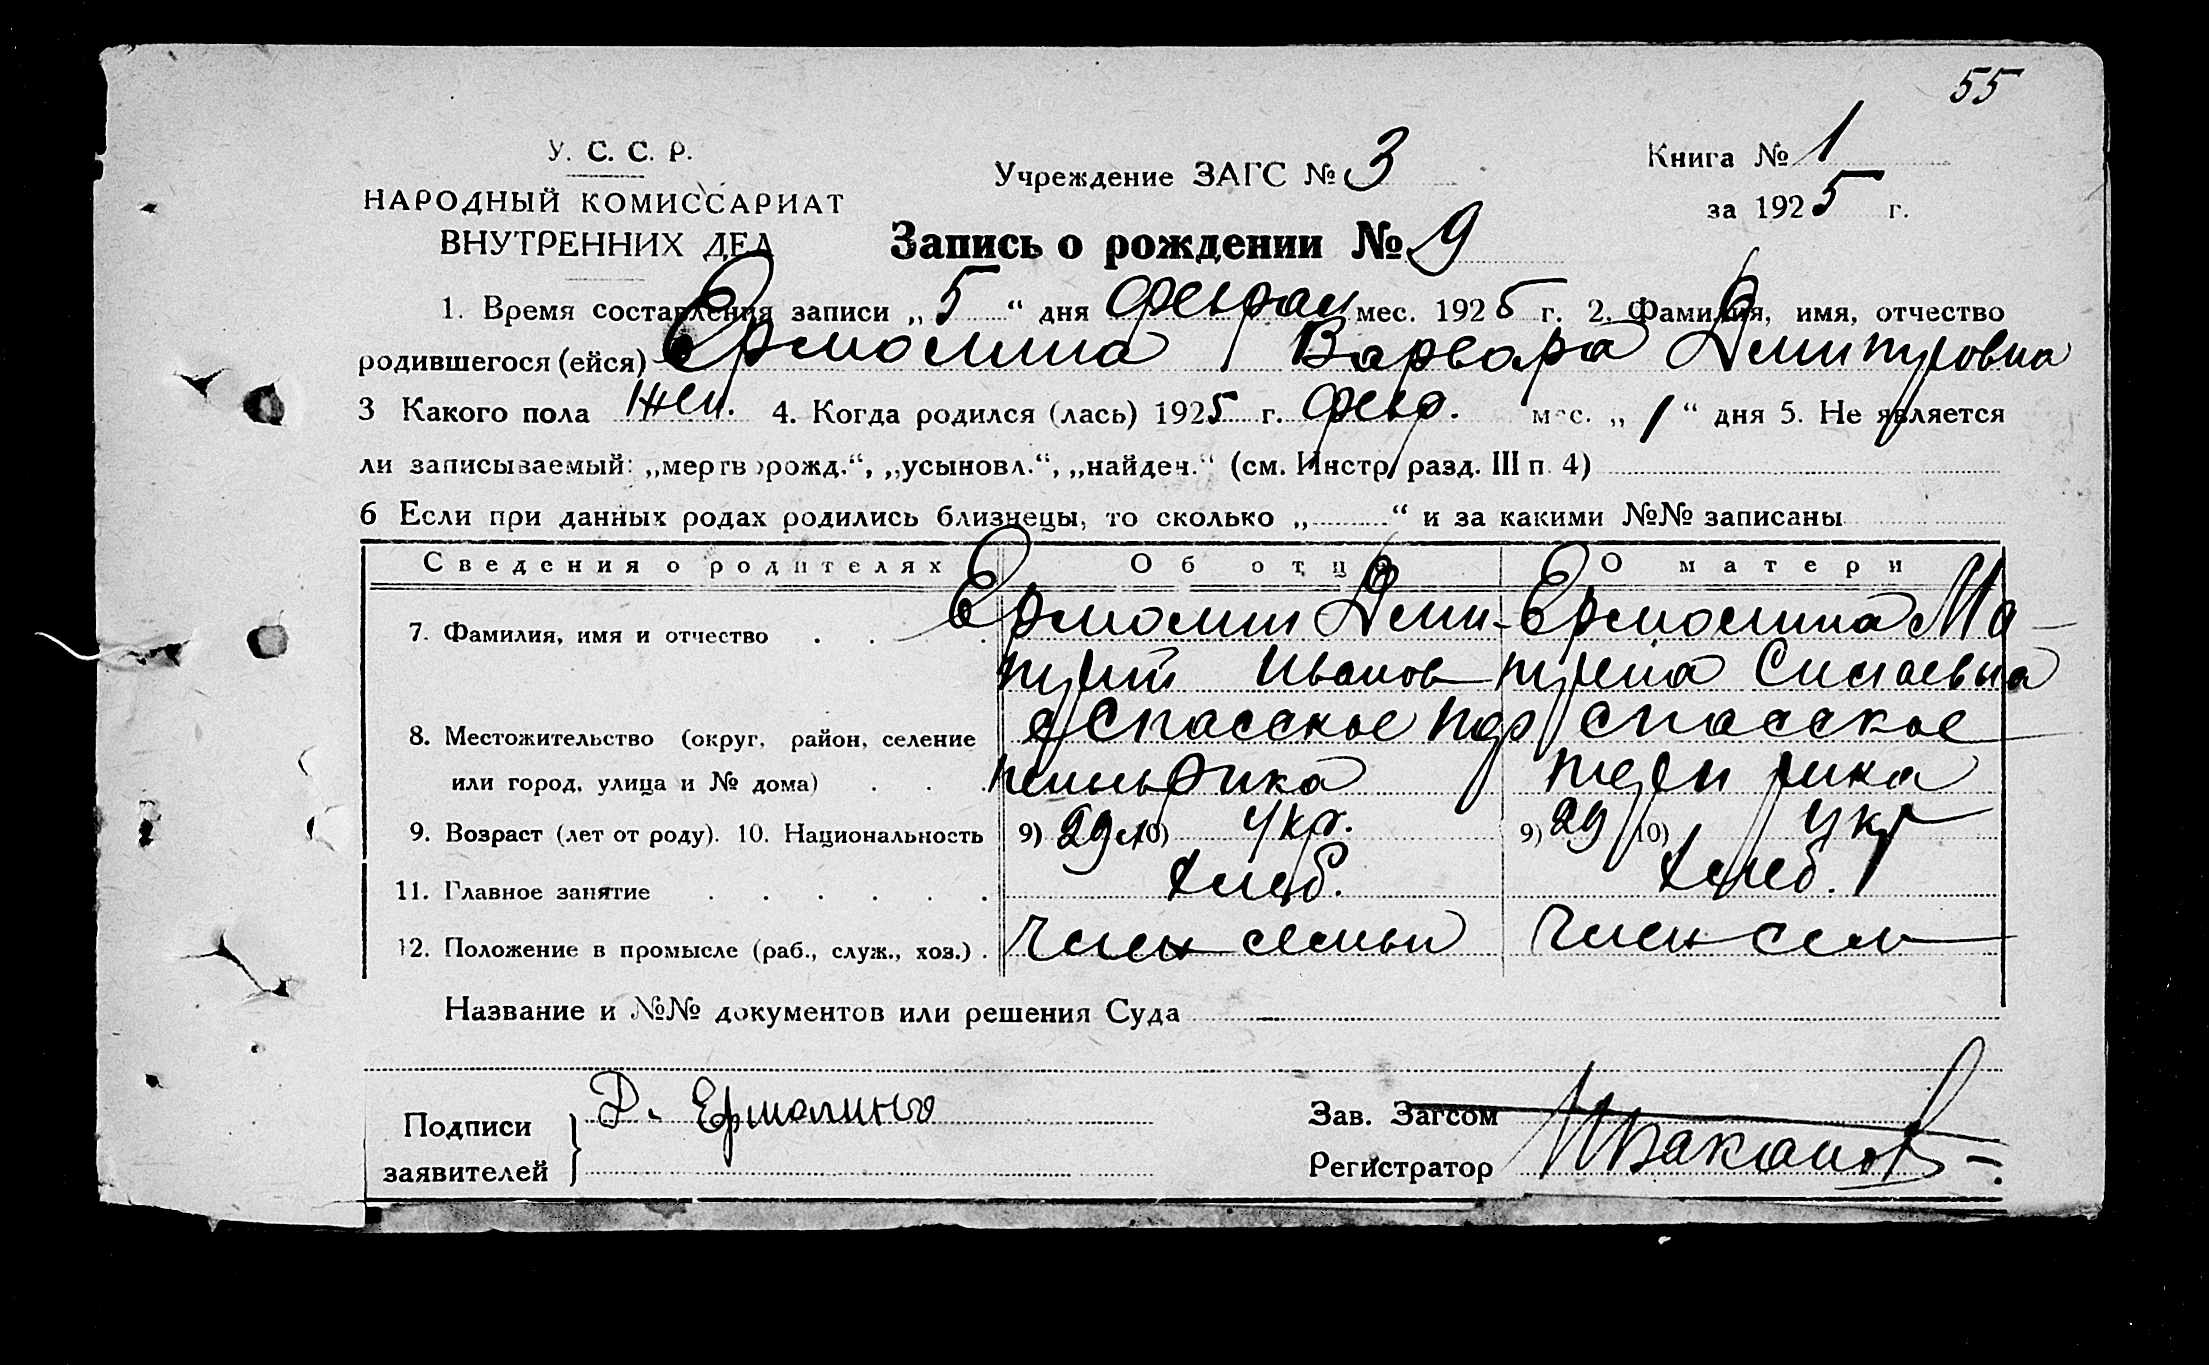 55
У. С. С. Р.
НАРОДНЫЙ КОМИССАРИАТ
ВНУТРЕННИХ ДЕЛ
Учреждение ЗАГС № 3
Книга № 1
за 1925 г.
Запись о рождении № 9
1. Время составления записи „5“ дня феврал мес. 1925 г. 2. Фамилия, имя, отчество
родившегося (ейся) Ермолина Варвара Дмитровна
3 Какого пола Жен. 4. Когда родился (лась) 1925 г. февр. мес. „1“ дня 5. Не является
ли записываемый: „мертворожд.“, „усыновл.“, „найден.“ (см. Инстр. разд. III п. 4)
6 Если при данных родах родились близнецы, то сколько „ “ и за какими №№ записаны
Сведения о родителях Об отце О матери
7. Фамилия, имя и отчество Ермолин Дми- Ермолина Ма-
трий Иванов трена Симаевна
8. Местожительство (округ, район, селение с Спасское спасское
или город, улица и № дома)
9. Возраст (лет от роду). 10. Национальность 9) 29 л 10) Укр. 9) 29 10) Укр
11. Главное занятие Хлеб. Хлеб.
12. Положение в промысле (раб., служ., хоз.) Член семьи Член сем
Название и №№ документов или решения Суда
Подписи
заявителей
Д. Ермолино
Зав. Загсом
Регистратор